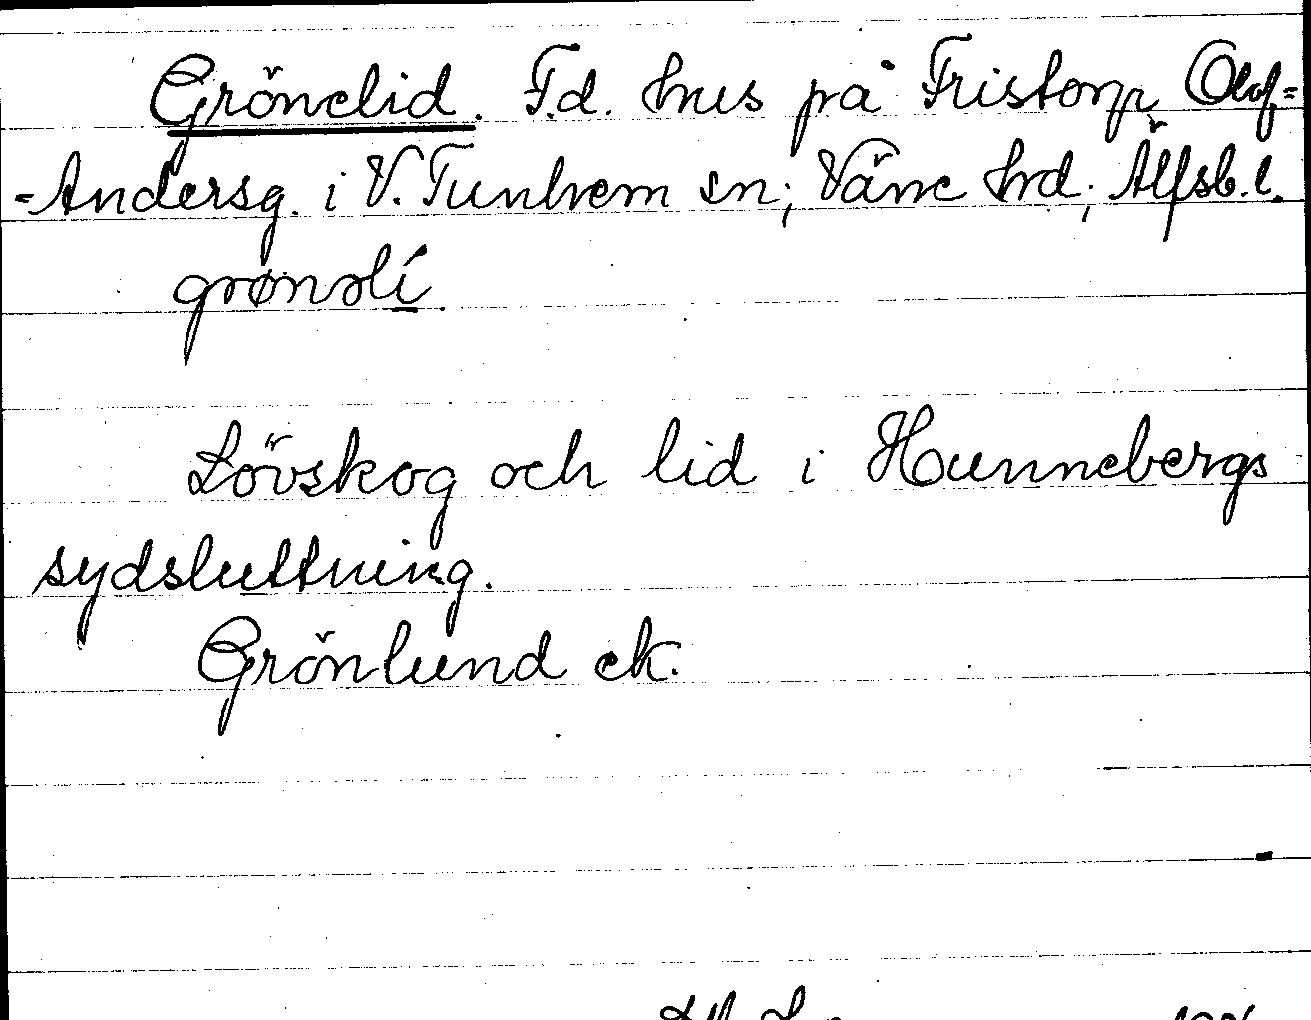 Grönelid. F.d. hus på Fristorp Olof=
=Andersg. i V. Tunhem sn; Väne hd; Älfsb. l.
grønəlí
Lövskog och lid i Hunnebergs
sydsluttning.
Grönlund ek.